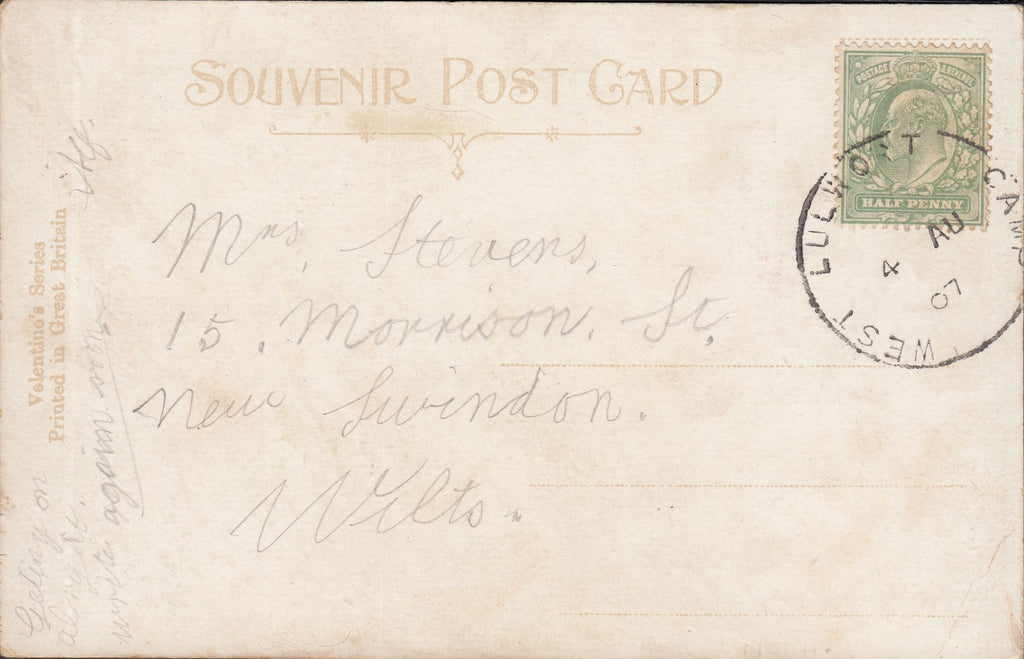 SOUVENIR POST CARD
POSTAGE & REVENUE
HALF PENNY
WEST LULWORT CAMP
AU
4
07
Mrs Stevens,
15. Morrison. St.
New Swindon.
Wilts.
Valentine's Series
Printed in Great Britain
on
again soon